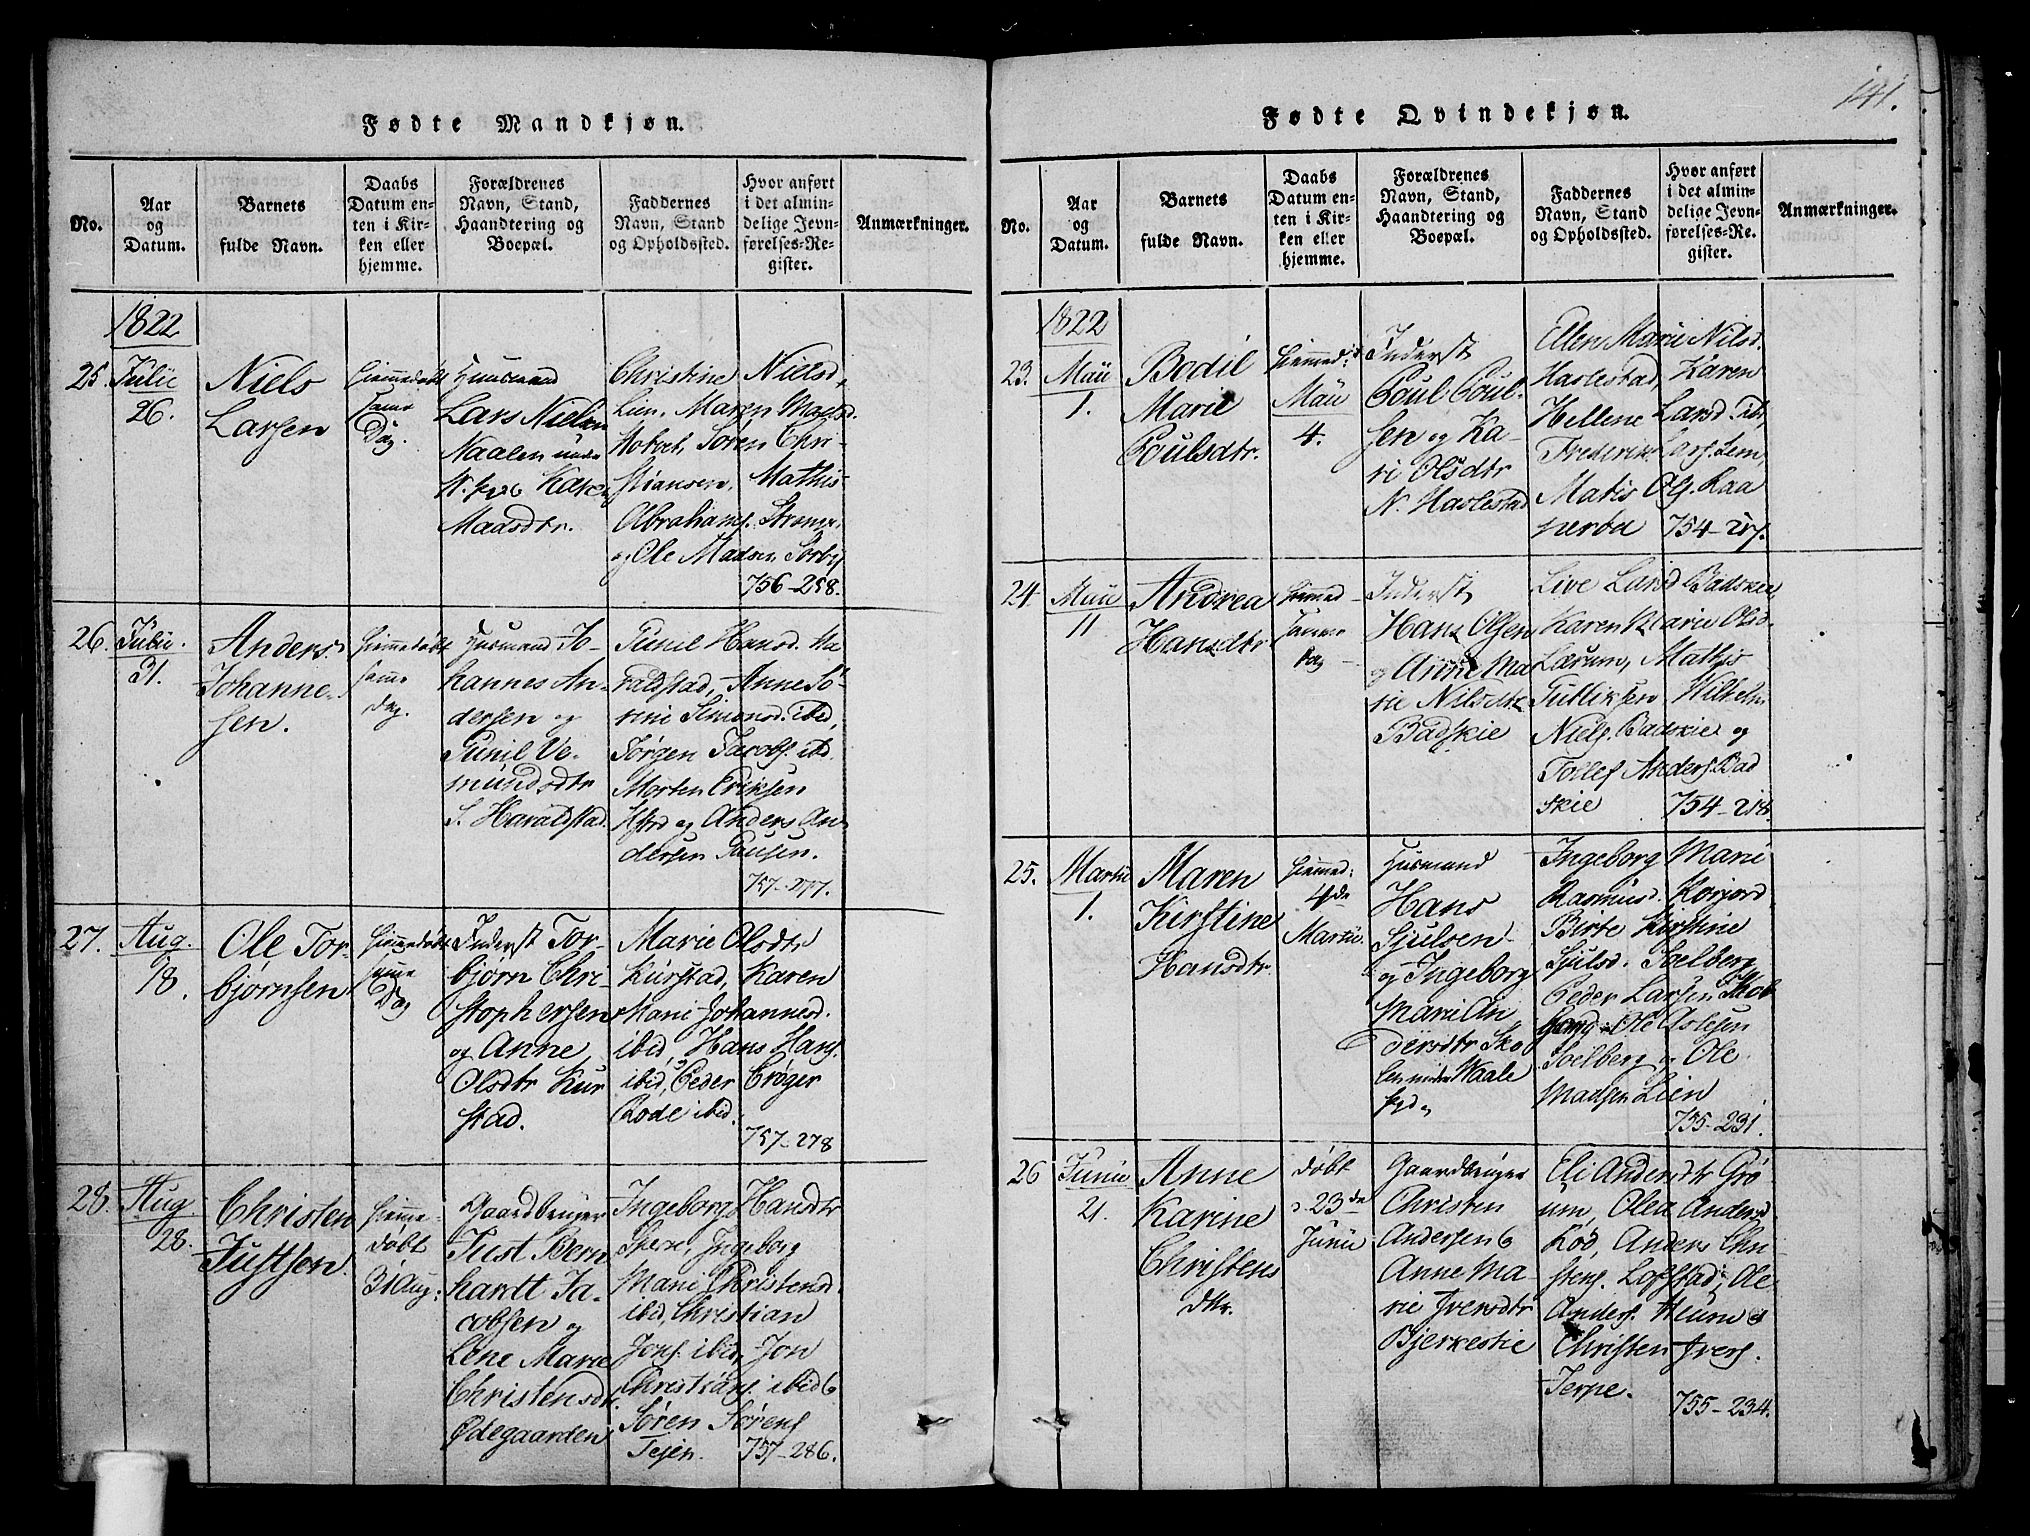 Fødte Mandkjøn.
No.
Aar
og
Datum.
Barnets
fulde Navn.
Daabs
Datum en-
ten i Kir-
ken eller
hjemme.
Forældrenes
Navn, Stand,
Haandtering og
Boepæl.
Faddernes
Navn, Stand
og Opholdssted.
Hvor anført
i det almin-
delige Jevn-
førelses-Re-
gister.
Anmærkninger.
1822
25.
Julii
26.
Niels
Larsen
Hiemmedøbt
samme
Dag.
Huusmand
Lars Nielsen
Naalen under
Karen
Maasdtr.
Christine Nielsd.
Lien, Maren Madsd.
Søren Chri-
stiansen, Mathis
Abrahams. Strømm
og Ole Madsen Sørby
756-258.
26.
Julii.
31.
Anders
Johanne-
sen.
Hiemmedøbt
samme
Dag.
Huusmand Jo-
hannes An-
dersen og
Gunil Ve-
mundsdtr
S. Haraldstad.
Gunil Hansd. Ha
raldstad, Anne Sø-
rine Simonsd. ibid,
Jørgen Jacobs. ibd.
Morten Eriksen
og Anders An
dersen Pausen.
757-277.
27.
Aug.
18.
Ole Tor-
bjørnsen
Hiemmedøbt
samme
Dag
Inderst Tor-
bjørn Chri-
stophersen
og Anne
Olsdtr Kur
stad.
Marie Olsdtr
Kurstad, Karen
Marie Johannesd.
ibid, Hans Hans.
ibid, Peder Crøger
Rode ibid.
757-278
28.
Aug
28.
Christen
Justsen.
Hiemme-
døbt
31 Aug:
Gaardbruger
Just Bern
hardt Ja-
cobsen og
Lene Marie
Christensdtr.
Ødegaarden
Ingeborg Hansdtr
Ingeborg
Marie Christensd.
ibid, Christian
Jons. ibid, Jon
Christians. ibid &
Søren Sørens
Tejen.
757-286.
141.
Fødte Qvindekjøn.
No.
Aar
og
Datum.
Barnets
fulde Navn.
Daabs
Datum en-
ten i Kir-
ken eller
hjemme.
Forældrenes
Navn, Stand,
Haandtering og
Boepæl.
Faddernes
Navn, Stand
og Opholdssted.
Hvor anført
i det almin-
delige Jevn-
førelses-Re-
gister.
Anmærkninger.
1822
23.
Maii
1.
Bodil
Marie
Poulsdtr.
Hiemmed:
Maii
4.
Inderst
Poul Poul-
sen og Ka-
ri Olsdtr
N. Haslestad
Ellen Marie Nilsd.
Haslestad, Karen
Hellene Larsd ibd,
Frederik Lars. Lem,
Matis Ols. Raa
nerba
754-217.
24.
Maii
11
Andrea
Hansdtr
Hiemmed
samme
Dag
Inderst
Hans Olsen
og Anne Ma
rie Nilsdtr
Badskie
Live Larsd Badskie
Karen Marie Olsd.
Lærum, Mathis
Gulliksen Wilhelm
Niels. Badskie og
Tollef Anders. Bad
skie
754-218.
25.
Martii
1.
Maren
Kirstine
Hansdtr.
Hiemmed:
4de
Martii.
Husmand
Hans
Hjulsen
og Ingeborg
Marie An
dersdtr Sko
len under Waale
Ingeborg Marie
Rasmusd.
Birte Kirstine
Soelberg
Peder Larsen
Ole Aslesen
Soelberg og Ole
Madsen Lien
755-231.
26
Junii
21.
Anne
Karine
Christens
dtr.
døbt
d. 23de
Junii
Gaardbruger
Christen
Andersen &
Anne Ma-
rie Iversdtr
Bjerkestie
Eli Andersdtr Grø
num, Olea Andersd
Rød, Anders Chri-
stens. Lofstad, Ole
Anders. Heum &
Christen Ivers.
Jerpe.
755-234.